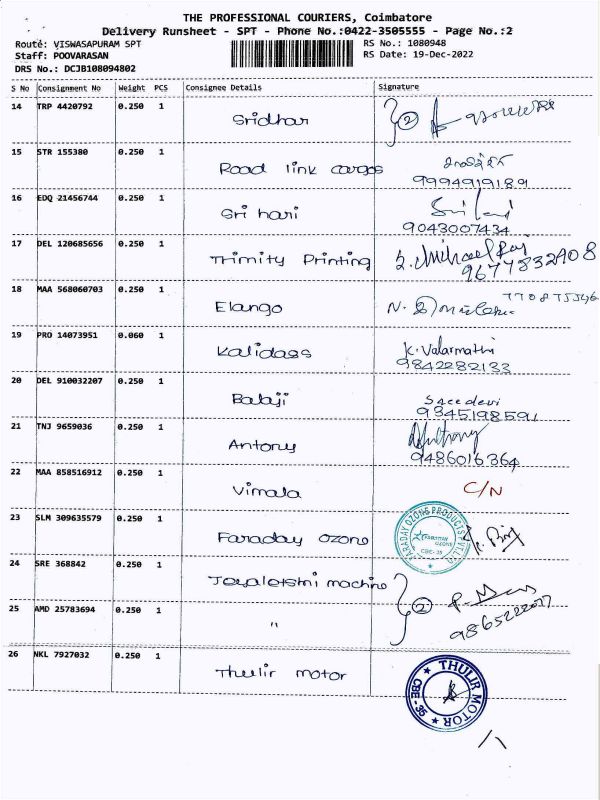 THE PROFESSIONAL COURIERS, Coimbatore
Delivery Runsheet - SPT - Phone No.:0422-3505555 - Page No.:2
Route: VISWASAPURAM SPT RS No.: 1080948
Staff: POOVARASAN RS Date: 19-Dec-2022
DRS No.: DCJB108094802
S No Consignment No Weight PCS Consignee Details Signature
14 TRP 4420792 0.250 1 Sridhar 2
15 STR 155380 0.250 1 Road link cargos
9994919189
16 EDQ 21456744 0.250 1 Sri hari
9043007434
17 DEL 120685656 0.250 1 Trimity Printing
9677832908
18 MAA 568060703 0.250 1 Elango
19 PRO 14073951 0.060 1 Kalidass K. Valarmathi
9842282133
20 DEL 910032207 0.250 1 Balaji Sreedevi
9345198591
21 TNJ 9659036 0.250 1 Antony
9486016364
22 MAA 858516912 0.250 1 Vimala C/N
23 SLM 309635579 0.250 1 Faraday ozone
FARADAY OZONE PRODUCTS PVT LTD
CBE-35
24 SRE 368842 0.250 1 machine 2
25 AMD 25783694 0.250 1 "
26 NKL 7927032 0.250 1 Thulir motor
THULIR MOTOR
CBE - 35